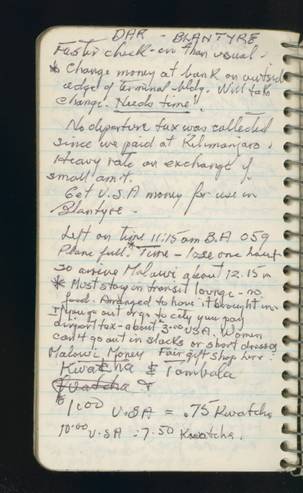 DAR - BLANTYRE
Faster check-in than usual.
* Change money at bank on outside
edge of terminal bldg. Will take
change. Needs time!
No departure tax was collected
since we paid at Kilimanjaro.
Heavy rate on exchange of
small amt.
Get U.S.A money for use in
Blantyre.
Left on time 11:15 am B.A 059
Plane full. Time - lose one hour
so arrive Malawi about 12.15
* Must stay in transit lounge - no
food. Arranged to have it brought in.
If you go out or go to city you pay
airport tax - about 3.00 USA. Women
can't go out in slacks or short dresses
Malawi Money Fair gift shop here:
Kwatcha & Tambala
Kwatcha
$1.00 U.S.A = .75 Kwatcha
10.00 U.S.A : 7.50 Kwatcha.